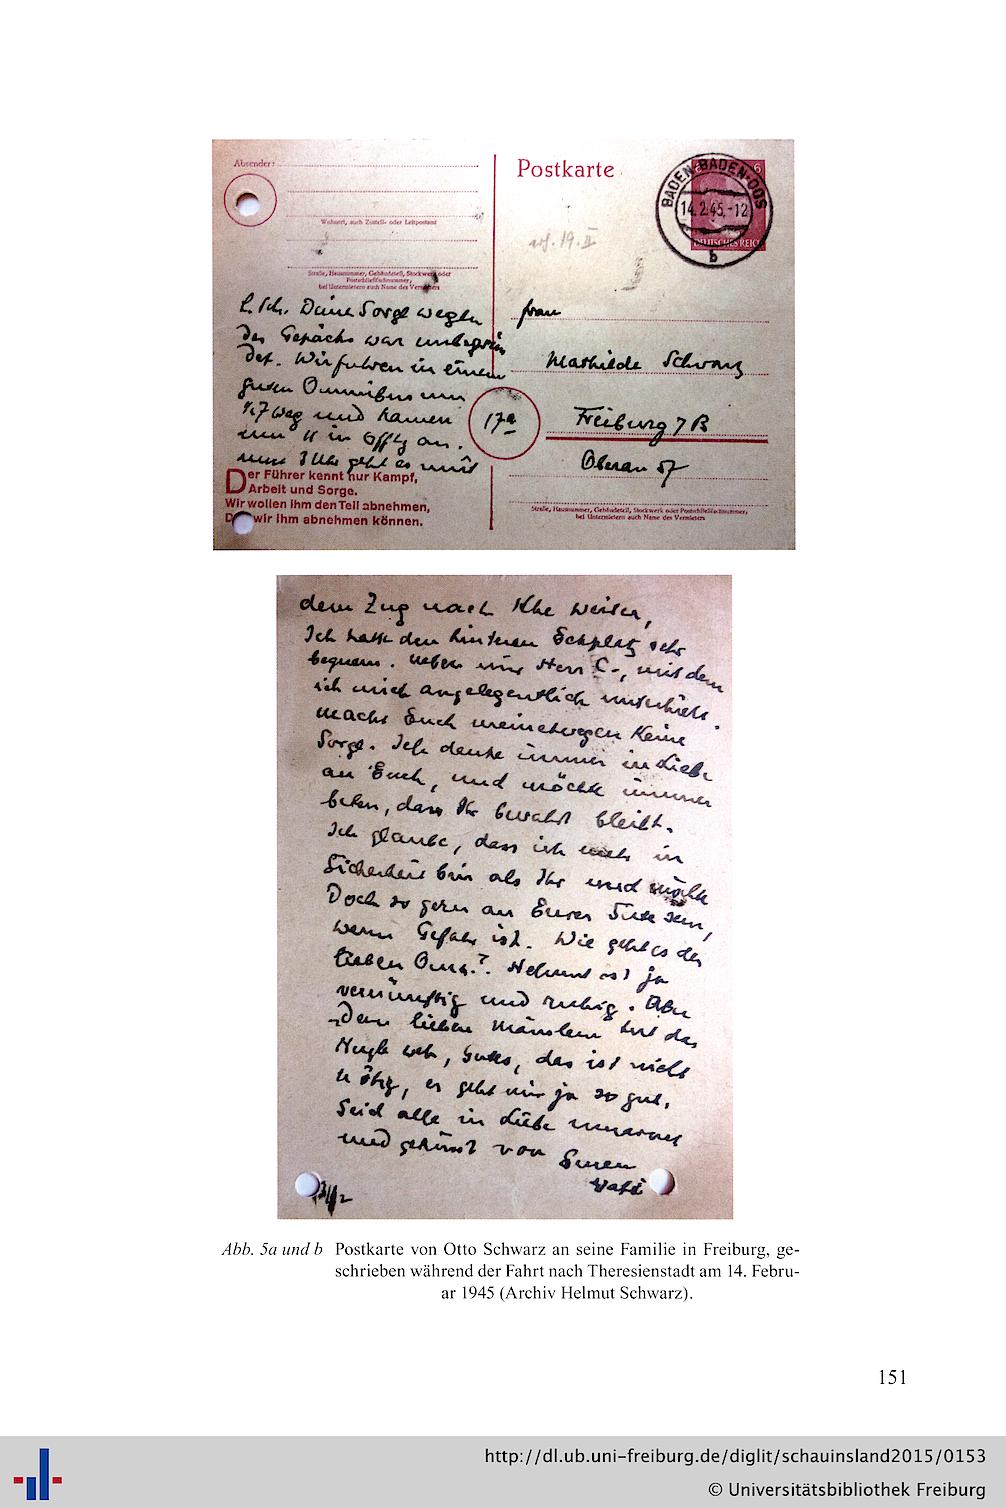 Absender:
Wohnort, auch Zustell- oder Leitpostamt
Straße, Hausnummer, Gebäudeteil, Stockwerk oder
Postschließfachnummer;
bei Untermietern auch Name des Vermieters
Postkarte
6
BADEN-BADEN-OOS
14.2.45.-12
b
DEUTSCHES REICH
19. II
L. Sch. Deine Sorge wegen
des Gepäcks war unbegrün
det. Wir fuhren in einem
guten Omnibus um
½7 weg und kamen
um 11 in Offbg an.
Um 3 Uhr geht es mit
Der Führer kennt nur Kampf,
Arbeit und Sorge.
Wir wollen ihm den Teil abnehmen,
D wir ihm abnehmen können.
17a
Frau
Mathilde Schwarz
Freiburg 7 B
Oberau 57
Straße, Hausnummer, Gebäudeteil, Stockwerk oder Postschließfachnummer;
bei Untermietern auch Name des Vermieters
dem Zug nach Khe weiter,
Ich hatte den hinteren Eckplatz sehr
bequem. Neben mir Herr C., mit dem
ich mich angelegentlich unterhielt.
Macht Euch meinetwegen keine
Sorge. Ich denke immer in Liebe
an Euch, und möchte immer
beten, dass Ihr bewahrt bleibt.
Ich glaube, dass ich mehr in
Sicherheit bin als Ihr und möchte
Doch so gern an Eurer Seite sein,
wenn Gefahr ist. Wie geht es der
lieben Oma?. Helmut ist ja
vernünftig und ruhig. Aber
Dem lieben tut das
weh, das ist nicht
nötig, es geht mir ja so gut.
Seid alle in Liebe umarmt
und geküsst von Eurem
Vati
Abb. 5a und b Postkarte von Otto Schwarz an seine Familie in Freiburg, ge-
schrieben während der Fahrt nach Theresienstadt am 14. Febru-
ar 1945 (Archiv Helmut Schwarz).
151
http://dl.ub.uni-freiburg.de/diglit/schauinsland2015/0153
© Universitätsbibliothek Freiburg